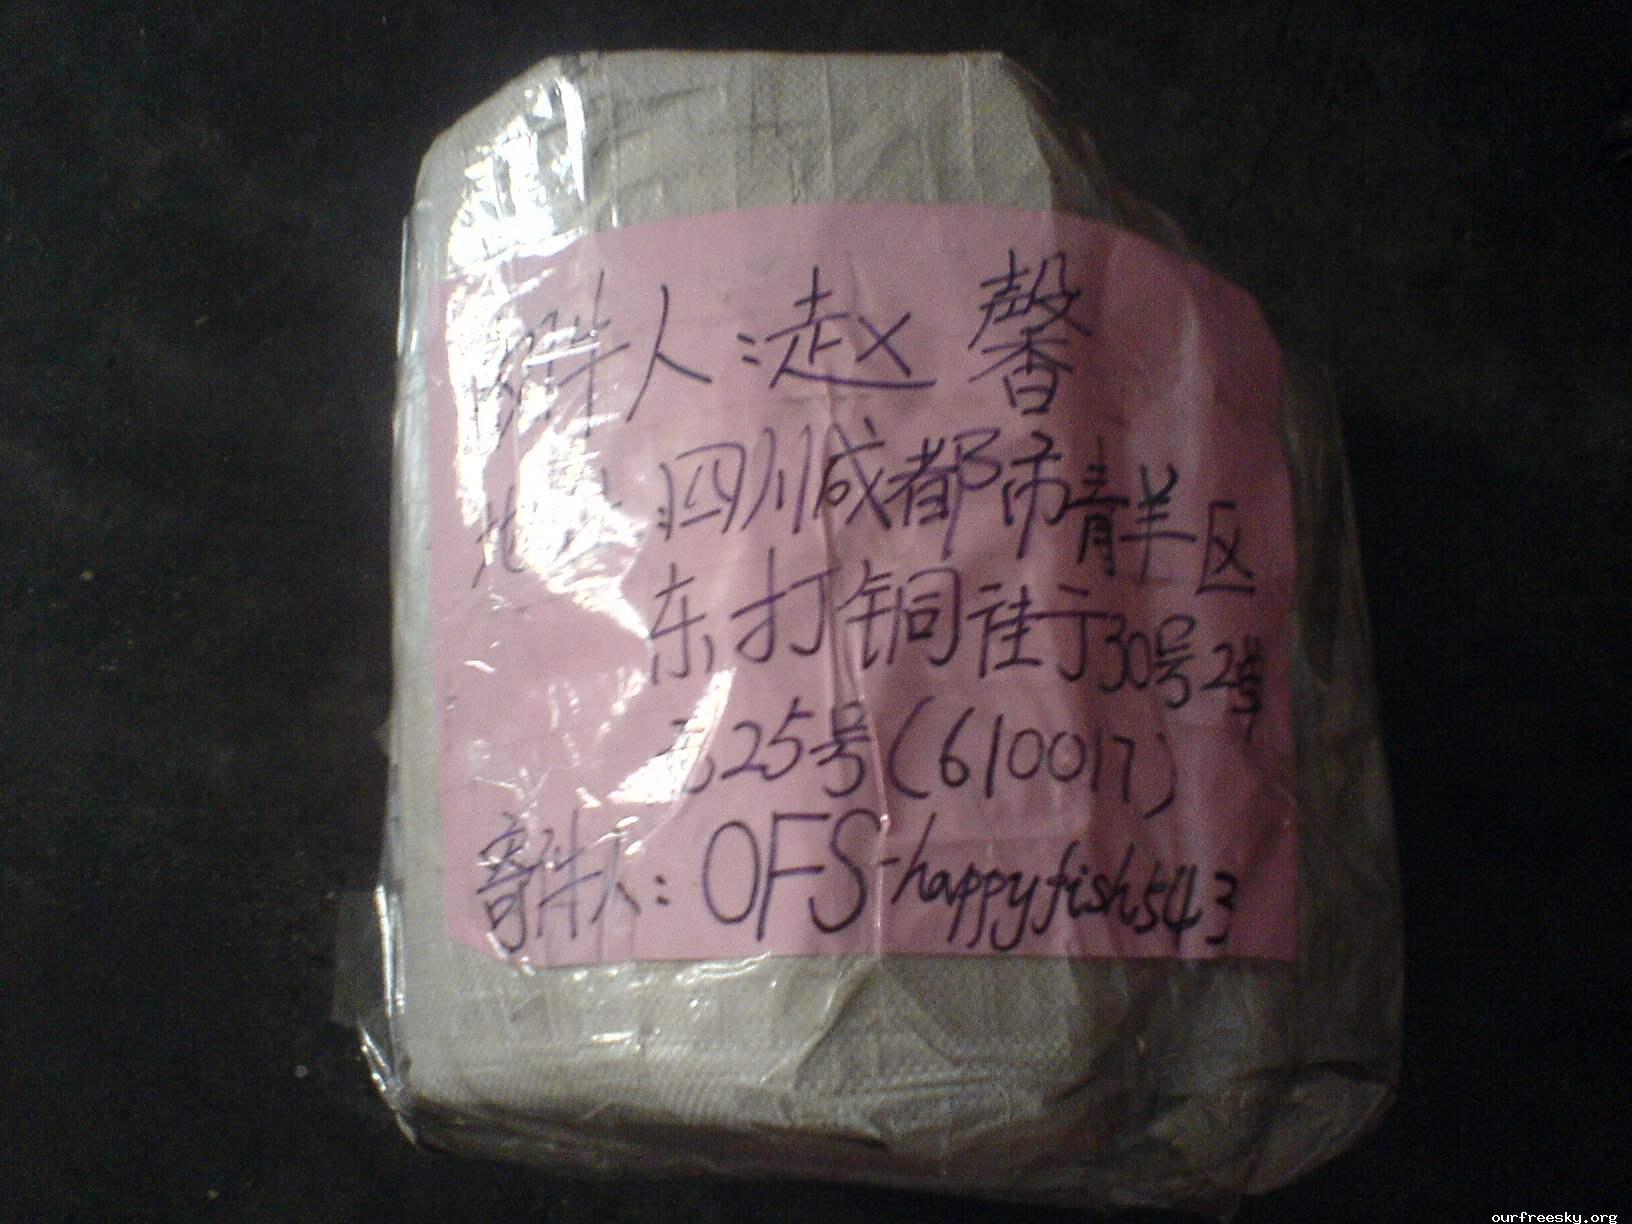 件人:赵馨
地址:四川成都市青羊区
东打铜街30号2
25号(610017)
寄件人:OFS-happyfish543
ourfreesky.org